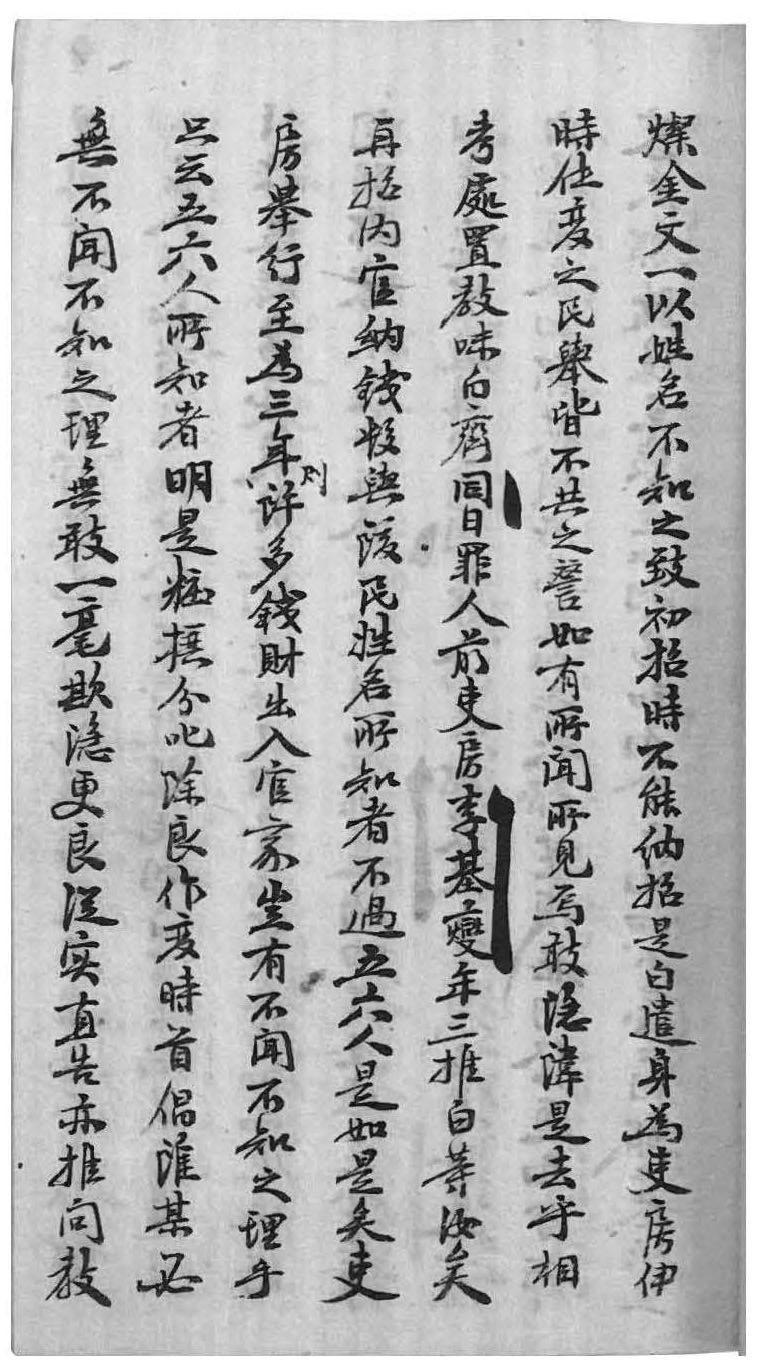 燦金文一以姓名不知之致初招時不能納招是白遣身爲吏房伊
時仕变之民舉皆不共之讐如有所聞所見焉敢隐諱是去乎相
考處置敎味白齊同日罪人前吏房李基燮年三推白等汝矣
再招内官納錢投與後民姓名所知者不過五六人是如是矣吏
房舉行至爲三年則許多錢財出入官家豈有不聞不知之理乎
只云五六人所知者明是粧撰分叱除良作变時首倡誰某必
無不聞不知之理無敢一毫欺隐更良從实直告亦推问敎